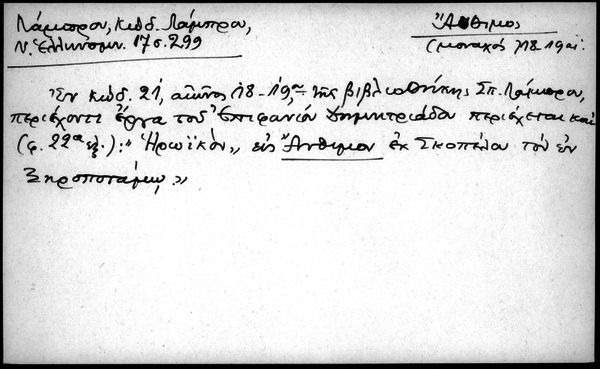 Λάμπρου, Κώδ. Λάμπρου,
Ν. Ἑλληνομν. 17 σ. 299
Ἄνθιμος
(μοναχὸς 18-19 αἰ.
Ἐν κώδ. 21, αἰῶνος 18-19, τῆς βιβλιοθήκης Σπ. Λάμπρου,
περιέχοντι ἔργα τοῦ Ἐπιφανίου Δημητριάδου περιέχεται καὶ
(φ. 22α ἑξ.): "Ἡρωϊκὸν,, εἰς Ἄνθιμον ἐκ Σκοπέλου τὸν ἐν
Ξηροποτάμῳ."